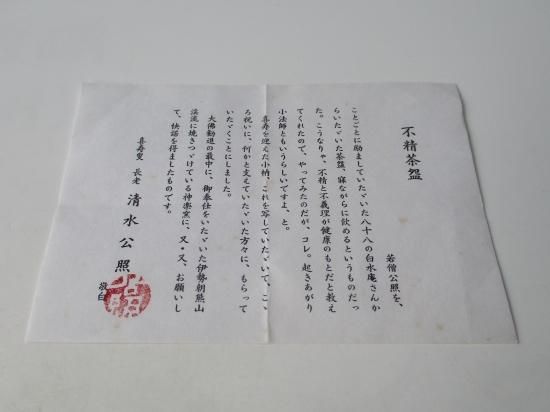 不精茶盌
若僧公照を、
ことごとに励ましていたゞいた八十八の白水庵さんか
らいたゞいた茶盌、寐ながらに飲めるというものだっ
た。こうなりゃ、不精と不義理が健康のもとだと教え
てくれたので、やってみたのだが、コレ。起きあがり
小法師ともいうらしいですよ、と。
喜寿を迎えた小衲、これを写していたゞいて、こゝ
ろ祝いに、何かと支えていたゞいた方々に、もらって
いたゞくことにしました。
大佛勧進の最中に、御奉仕をいたゞいた伊勢朝熊山
渓流に焼きつゞけている神楽窯に、又・又、お願いし
て、快諾を得ましたものです。
喜寿叟 長老 清水公照
敬白